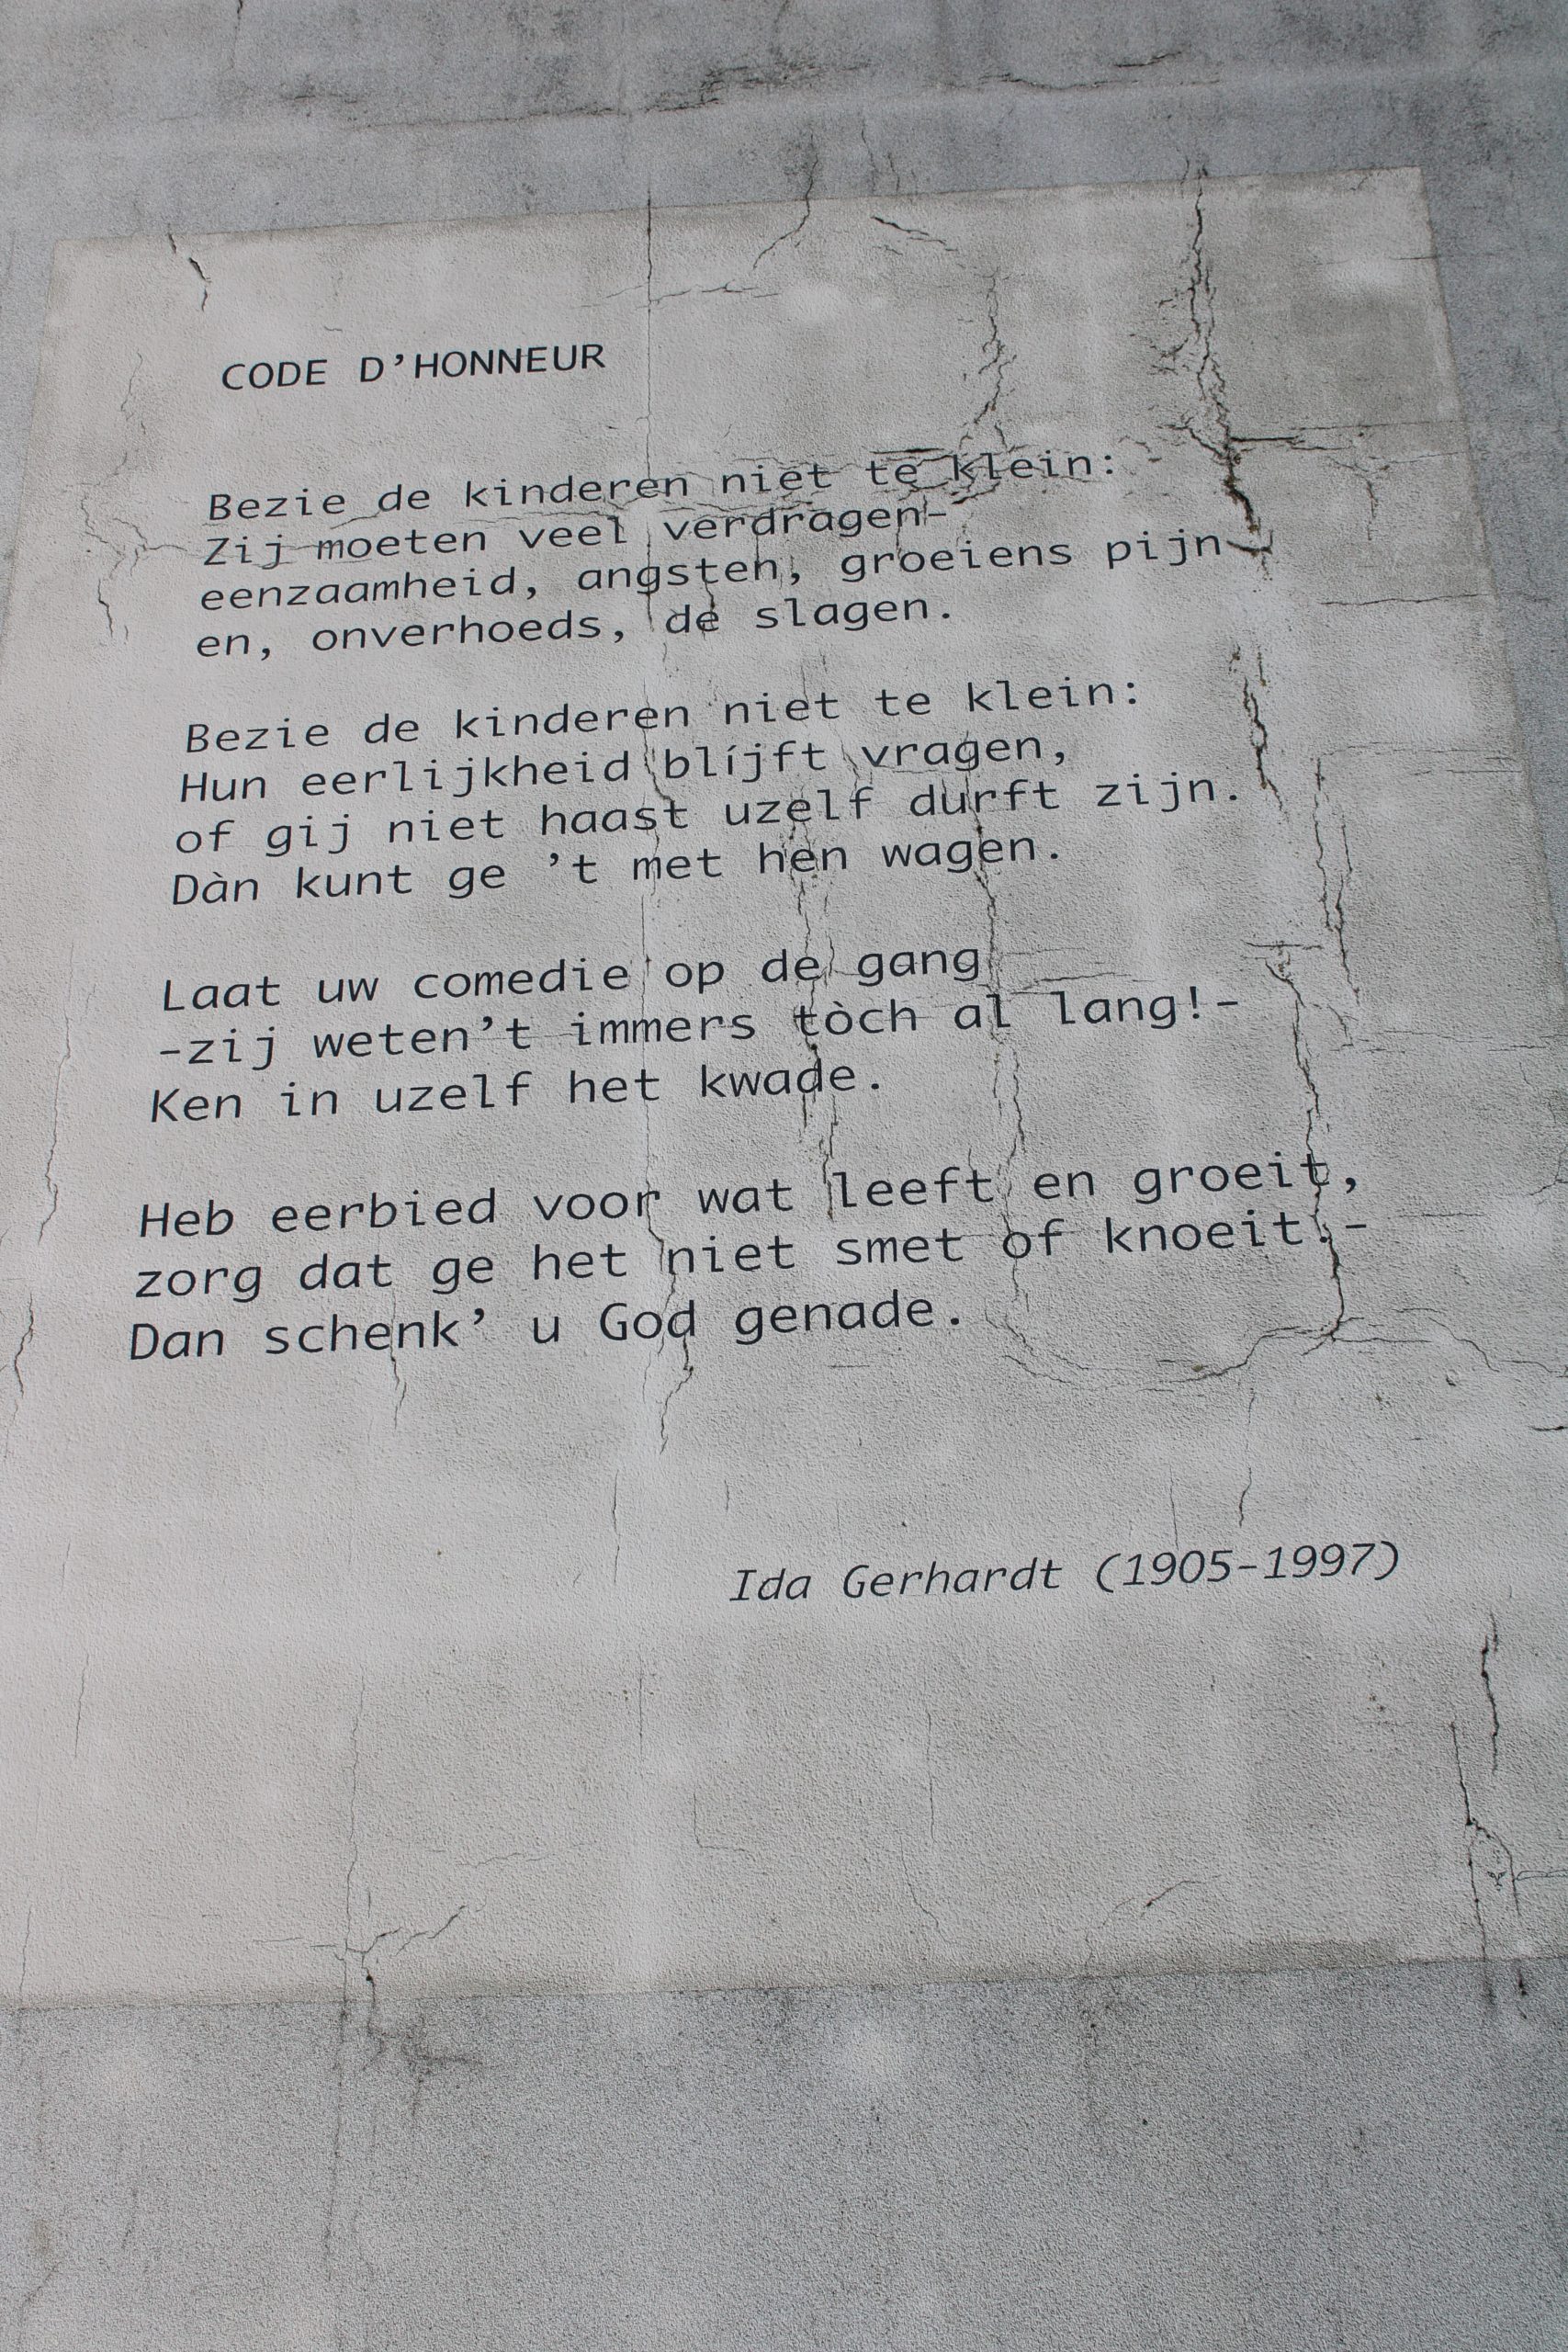 CODE D’HONNEUR
Bezie de kinderen niet te klein:
Zij moeten veel verdragen-
eenzaamheid, angsten, groeiens pijn
en, onverhoeds, de slagen.
Bezie de kinderen niet te klein:
Hun eerlijkheid blíjft vragen,
of gij niet haast uzelf durft zijn.
Dàn kunt ge ’t met hen wagen.
Laat uw comedie op de gang
-zij weten’t immers tòch al lang!-
Ken in uzelf het kwade.
Heb eerbied voor wat leeft en groeit,
zorg dat ge het niet smet of knoeit.-
Dan schenk’ u God genade.
Ida Gerhardt (1905-1997)